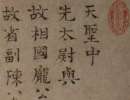 天聖中
先太尉與
故相國龐公
故省副陳公